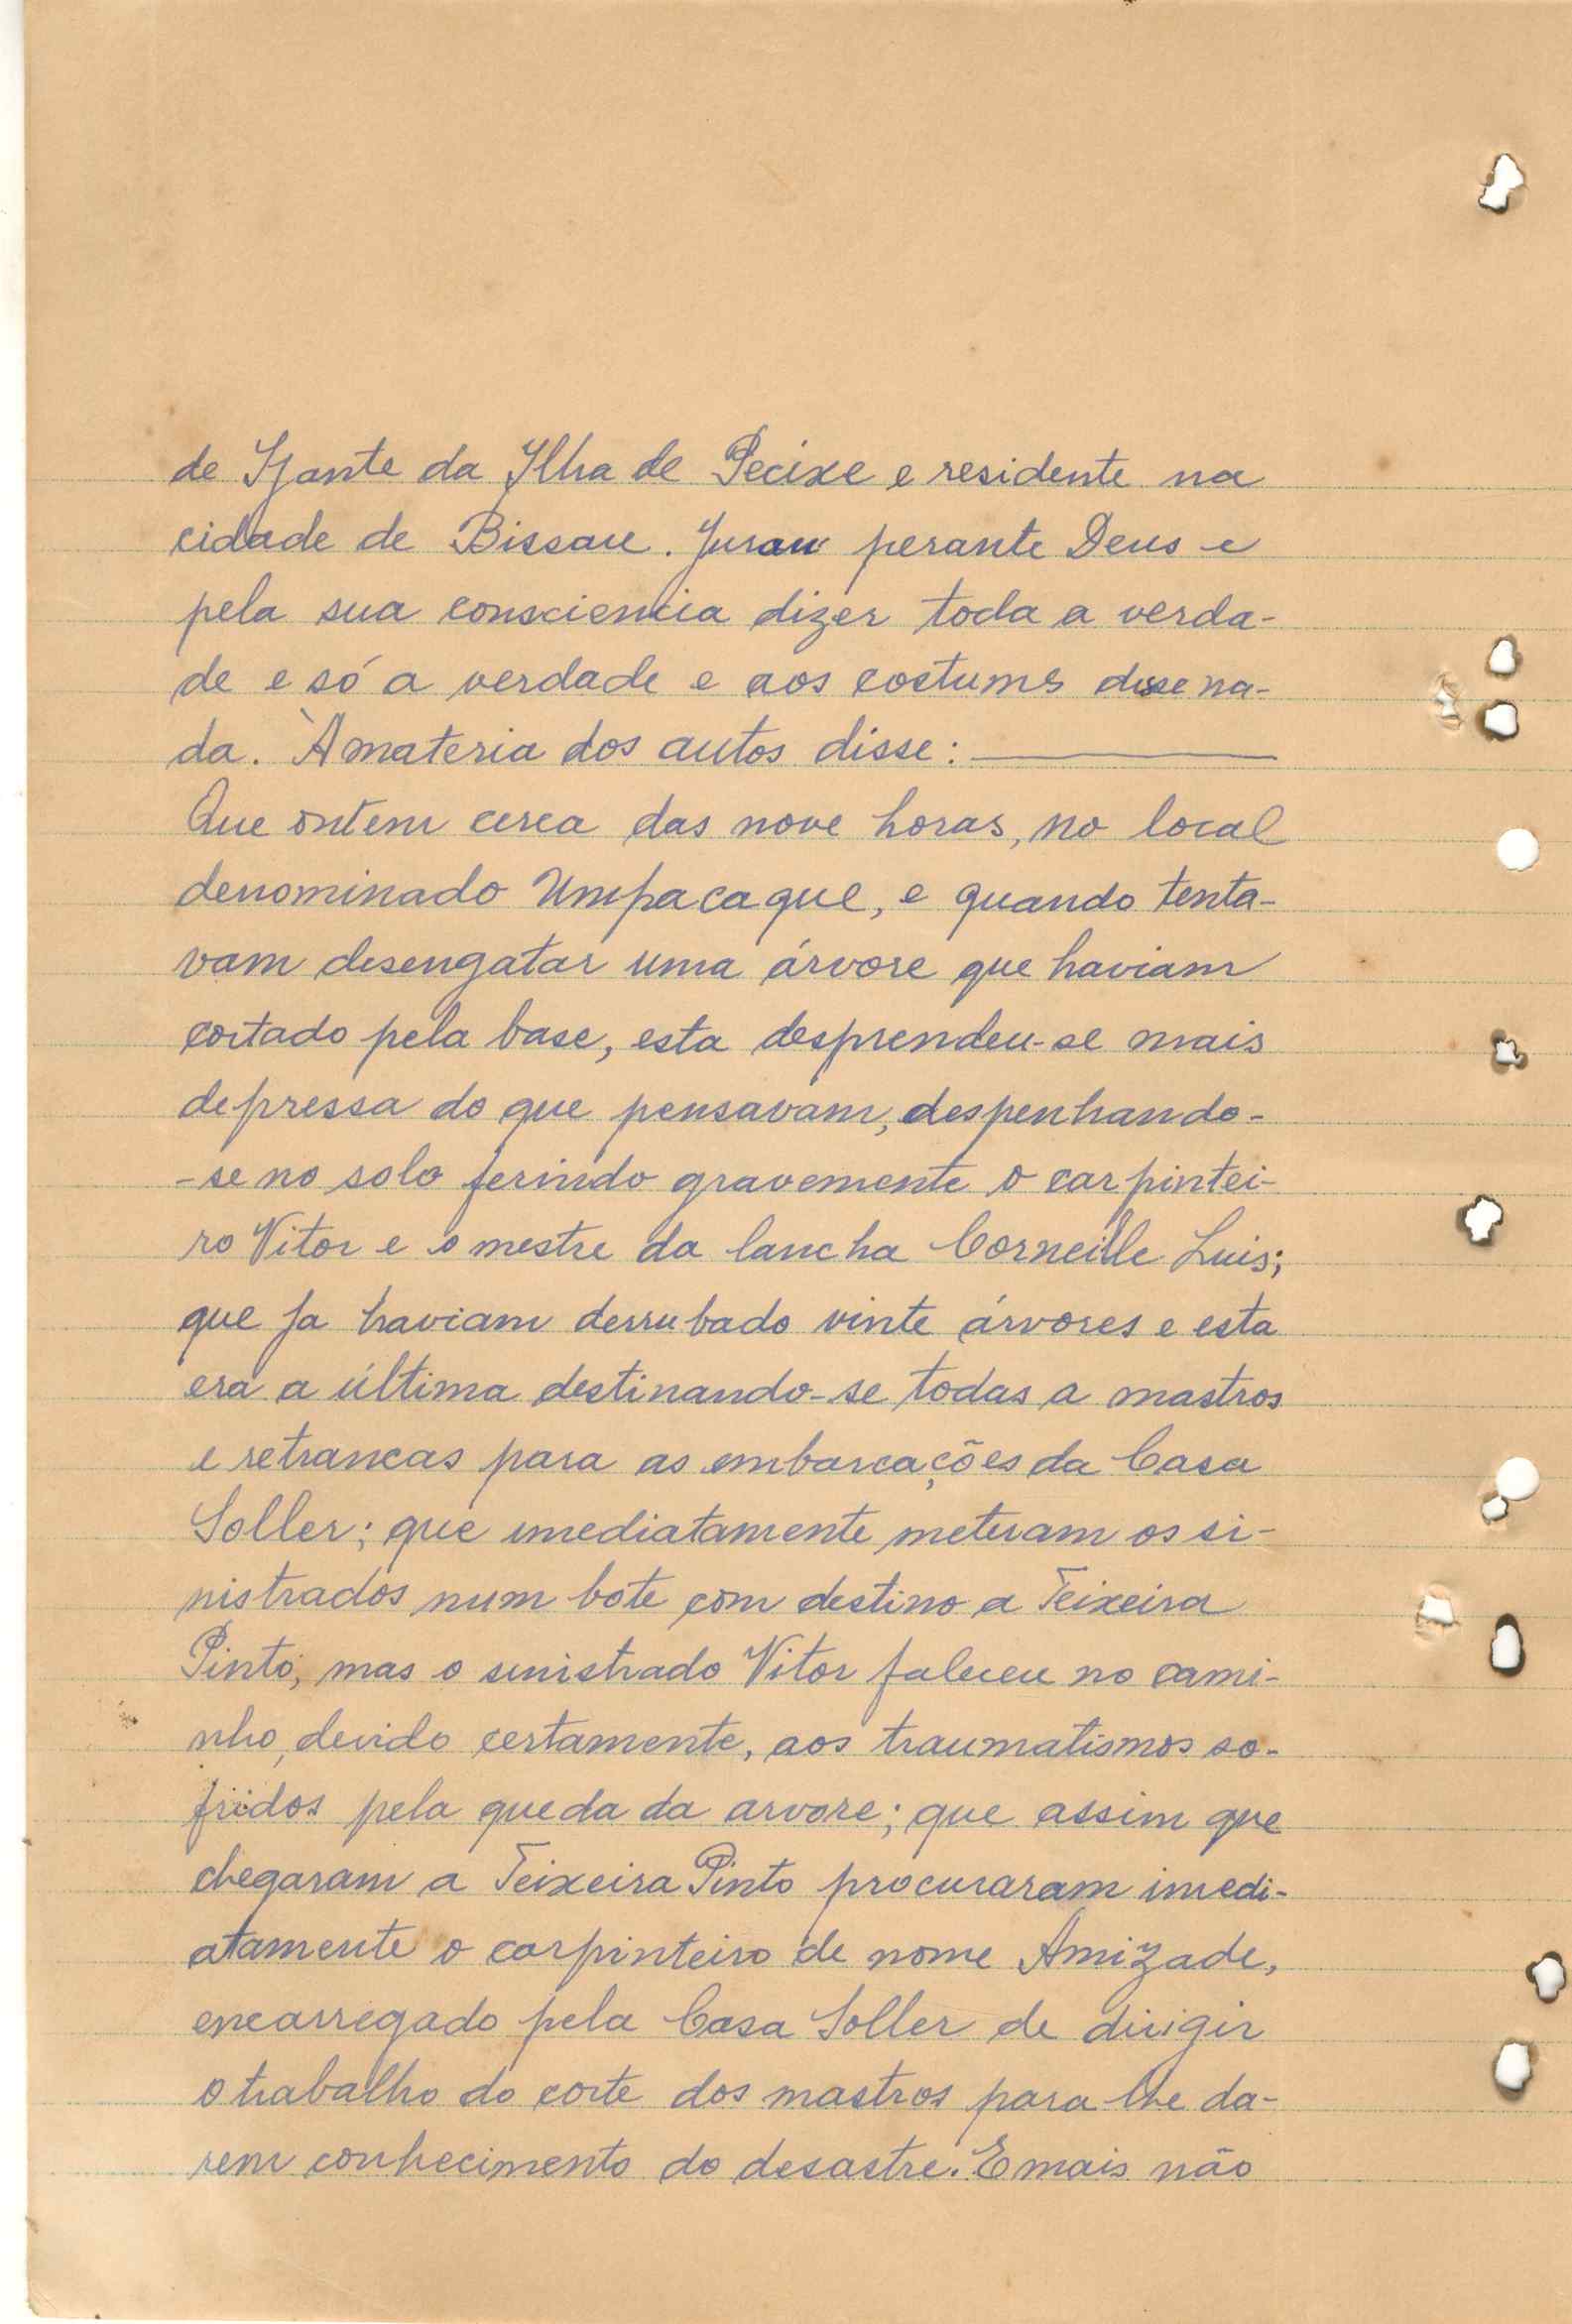 de Ijante da Ilha de Pecixe e residente na
cidade de Bissau. Jurau perante Deus e
pela sua consciencia dizer toda a verda-
de e só a verdade e aos costumes disse na-
da. À materia dos autos disse:
Que ontem cerca das nove horas, no local
denominado Umpacaque, e quando tenta-
vam desengatar uma árvore que haviam
cortado pela base, esta desprendeu-se mais
depressa do que pensavam, despenhando-
-se no solo ferindo gravemente o carpintei-
ro Vitor e o mestre da lancha Corneille Luis;
que ja haviam derrubado vinte árvores e esta
era a última destinando-se todas a mastros
e retrancas para as embarcações da Casa
Soller; que imediatamente meteram os si-
nistrados num bote com destino a Teixeira
Pinto, mas o sinistrado Vitor faleceu no cami-
nho, devido certamente, aos traumatismos so-
fridos pela queda da arvore; que assim que
chegaram a Teixeira Pinto procuraram imedi-
atamente o carpinteiro de nome Amizade,
encarregado pela Casa Soller de dirigir
o trabalho do corte dos mastros para lhe da-
rem conhecimento do desastre. E mais não